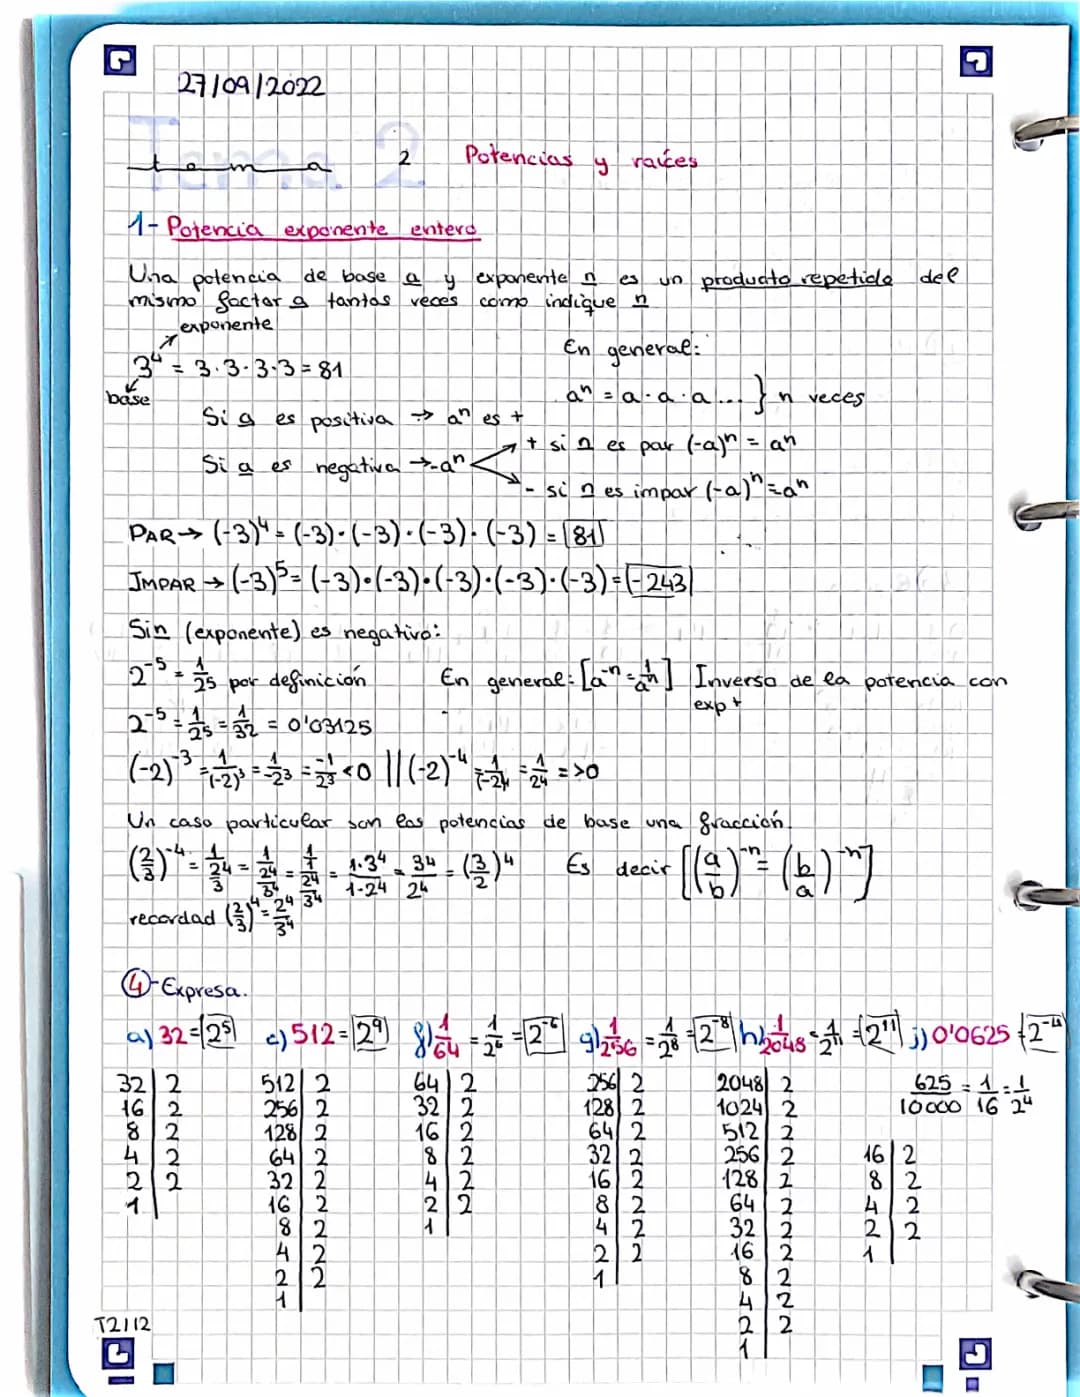 27/09/2022
Tema 2
tema 2 Potencias y raíces
1- Potencia exponente entero
Una potencia de base a y exponente n es un producto repetido del
mismo factor a tantas veces como indique n
exponente
3⁴ = 3·3·3·3 = 81
base
En general:
aⁿ = a·a·a... } n veces
Si a es positiva → aⁿ es +
Si a es negativa → -aⁿ
+ si n es par (-a)ⁿ = aⁿ
- si n es impar (-a)ⁿ = aⁿ
PAR → (-3)⁴ = (-3)·(-3)·(-3)·(-3) = 81
IMPAR → (-3)⁵ = (-3)·(-3)·(-3)·(-3)·(-3) = -243
Si n (exponente) es negativo:
2⁻⁵ = 1/2⁵ por definición En general: [a⁻ⁿ = 1/aⁿ] Inverso de la potencia con
exp +
2⁻⁵ = 1/2⁵ = 1/32 = 0'03125
(-2)⁻³ = 1/(-2)³ = 1/-2³ = -1/2³ <0 || (-2)⁻⁴ = 1/(-2)⁴ = 1/2⁴ = >0
Un caso particular son las potencias de base una fracción.
(2/3)⁻⁴ = 1/2⁴/3 = 1/2⁴/3⁴ = 1/1/2⁴/3⁴ = 1·3⁴/1·2⁴ = 3⁴/2⁴ = (3/2)⁴ Es decir [(a/b)⁻ⁿ = (b/a)⁻ⁿ]
recordad (2/3)⁴ = 2⁴/3⁴
4-Expresa.
a) 32 = 2⁵ c) 512 = 2⁹ f) 1/64 = 1/2⁶ = 2⁻⁶ g) 1/256 = 1/2⁸ = 2⁻⁸ h) 1/2048 = 1/2¹¹ = 2¹¹ j) 0'0625 = 2⁻⁴
32 | 2 512 | 2 64 | 2 256 | 2 2048 | 2 625/10000 = 1/16 = 1/2⁴
16 | 2 256 | 2 32 | 2 128 | 2 1024 | 2
8 | 2 128 | 2 16 | 2 64 | 2 512 | 2
4 | 2 64 | 2 8 | 2 32 | 2 256 | 2 16 | 2
2 | 2 32 | 2 4 | 2 16 | 2 128 | 2 8 | 2
1 | 16 | 2 2 | 2 8 | 2 64 | 2 4 | 2
8 | 2 1 | 4 | 2 32 | 2 2 | 2
4 | 2 2 | 2 16 | 2 1 |
2 | 2 1 | 8 | 2
1 | 4 | 2
2 | 2
1 |
T2/12